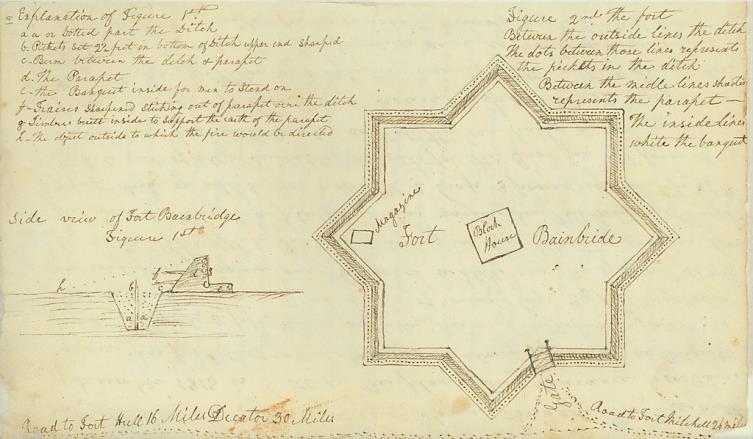 Explanation of Figure 1st
a a or Dotted part the Ditch
b. Pickets set 2½ feet in bottom of Ditch upper end Sharped
c. Burm between the ditch & parapet
d. The Parapet
e. the Banquet inside for men to Stand on
f. Fraises Sharpened Sticking out of parapet over the ditch
g Timbers built inside to Support the earth of the parapet
h. The object outside to which the fire would be directed
Figure 2nd the fort
Between the outside lines the ditch
The dots between those lines represents
the pickets in the ditch
Between the midle lines Shaded
represents the parapet —
The inside lines
white the banquet
Side view of Fort Bainbridge
Figure 1st
h
b
a
a
c
f
d
g
e
Magazine
Fort
Block
House
Bainbride
Gate
Road to Fort Hull 16 Miles Decator 30 Miles
Road to Fort Mitchell 24 miles